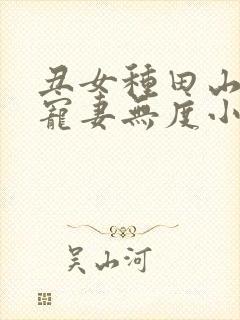 丑女種田山
寵妻無度小
吴山河